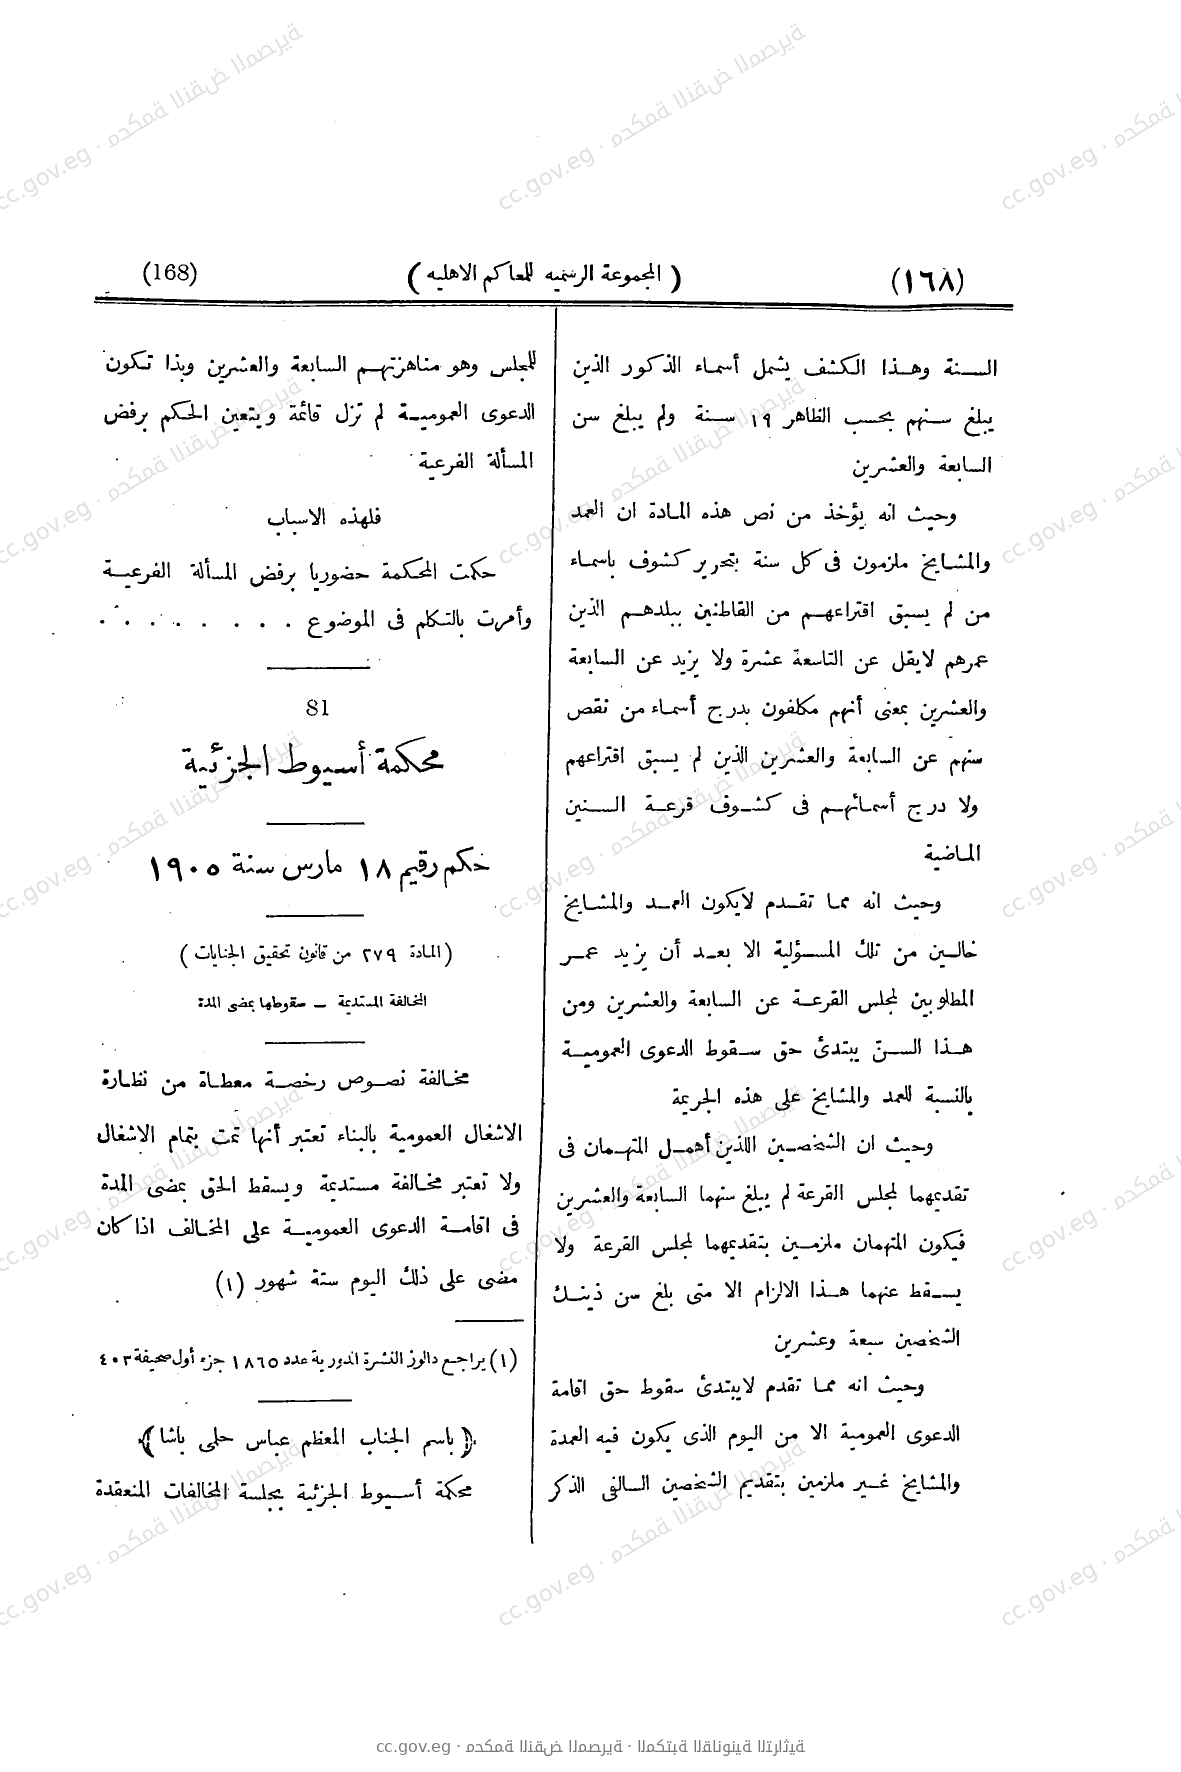 (١٦٨)
( المجموعة الرسميه للمحاكم الاهليه )
(168)
الســنة وهــذا الكشف يشمل أسماء الذكور الذين
يبلغ سنهم بحسب الظاهر ١٩ سنة ولم يبلغ سن
السابعة والعشرين
وحيث انه يؤخذ من نص هذه المادة ان العمد
والمشايخ ملزمون فى كل سنة بتحرير كشوف باسماء
من لم يسبق اقتراعهم من القاطنين ببلدهم الذين
عمرهم لايقل عن التاسعة عشرة ولا يزيد عن السابعة
والعشرين بمعنى أنهم مكلفون بدرج أسماء من نقص
سنهم عن السابعة والعشرين الذين لم يسبق اقتراعهم
ولا درج أسمائهم فى كشوف قرعة السنين
الماضية
وحيث انه مما تقدم لايكون العمد والمشايخ
خالين من تلك المسؤلية الا بعد أن يزيد عمر
المطلوبين لمجلس القرعة عن السابعة والعشرين ومن
هذا السن يبتدئ حق سقوط الدعوى العمومية
بالنسبة للعمد والمشايخ على هذه الجريمة
وحيث ان الشخصين اللذين أهمل المتهمان فى
تقديمهما لمجلس القرعة لم يبلغ سنهما السابعة والعشرين
فيكون المتهمان ملزمين بتقديمهما لمجلس القرعة ولا
يسقط عنهما هذا الالزام الا متى بلغ سن ذينك
الشخصين سبعة وعشرين
وحيث انه مما تقدم لايبتدئ سقوط حق اقامة
الدعوى العمومية الا من اليوم الذى يكون فيه العمدة
والمشايخ غير ملزمين بتقديم الشخصين السالفى الذكر
للمجلس وهو مناهزتهم السابعة والعشرين وبذا تكون
الدعوى العمومية لم تزل قائمة ويتعين الحكم برفض
المسألة الفرعية
فلهذه الاسباب
حكمت المحكمة حضوريا برفض المسألة الفرعية
وأمرت بالتكلم فى الموضوع . . . . . . . .
81
محكمة أسيوط الجزئية
حكم رقيم ١٨ مارس سنة ١٩٠٥
(المادة ٢٧٩ من قانون تحقيق الجنايات )
المخالفة المستديمة – سقوطها بمضى المدة
مخالفة نصوص رخصة معطاة من نظارة
الاشغال العمومية بالبناء تعتبر أنها تمت بتمام الاشغال
ولا تعتبر مخالفة مستديمة ويسقط الحق بمضى المدة
فى اقامة الدعوى العمومية على المخالف اذا كان
مضى على ذلك اليوم ستة شهور (١)
(١) يراجع دالوز النشرة الدورية عدد ١٨٦٥ جزء أول صحيفة ٤٠٣
﴿ باسم الجناب المعظم عباس حلمى باشا ﴾
محكمة أسيوط الجزئية بجلسة المخالفات المنعقدة
cc.gov.eg · محكمة النقض المصرية · المكتبة القانونية التراثية